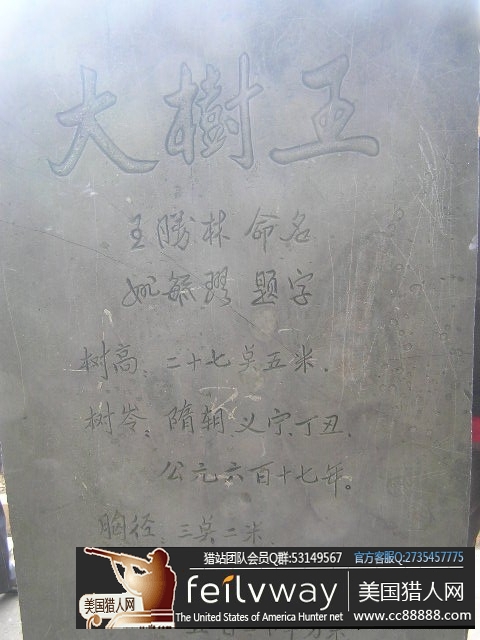 大樹王
王勝林 命名
姚毓璆 题字
树高:二十七点五米.
树岺:隋朝义宁.丁丑.
公元六百十七年。
胸径:三点二米.
猎站团队会员Q群:53149567 官方客服Q:2735457775
feilvway 美国猎人网
美国猎人网
The United States of America Hunter net www.cc88888.com